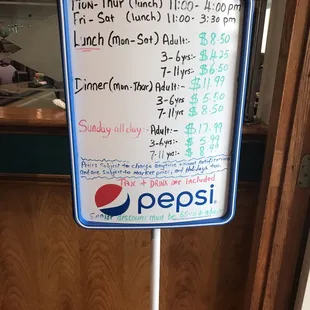 Mon-Thur (lunch) 11:00 - 4:00 pm
Fri - Sat (lunch) 11:00 - 3:30 pm
Lunch (mon-Sat) Adult:- $8.50
3-6yrs:- $4.25
7-11yrs:- $6.50
Dinner (mon-Thur) Adult:- $11.99
3-6yrs $5.50
7-11yrs:- $8.50
Sunday all day:- Adult:- $17.99
3-6yrs:- $5.99
7-11yrs:- $8.99
subject to change anytime without notification
and are subject to market price, and Holidays
TAX + DRINK are included
pepsi
Senior discount must be